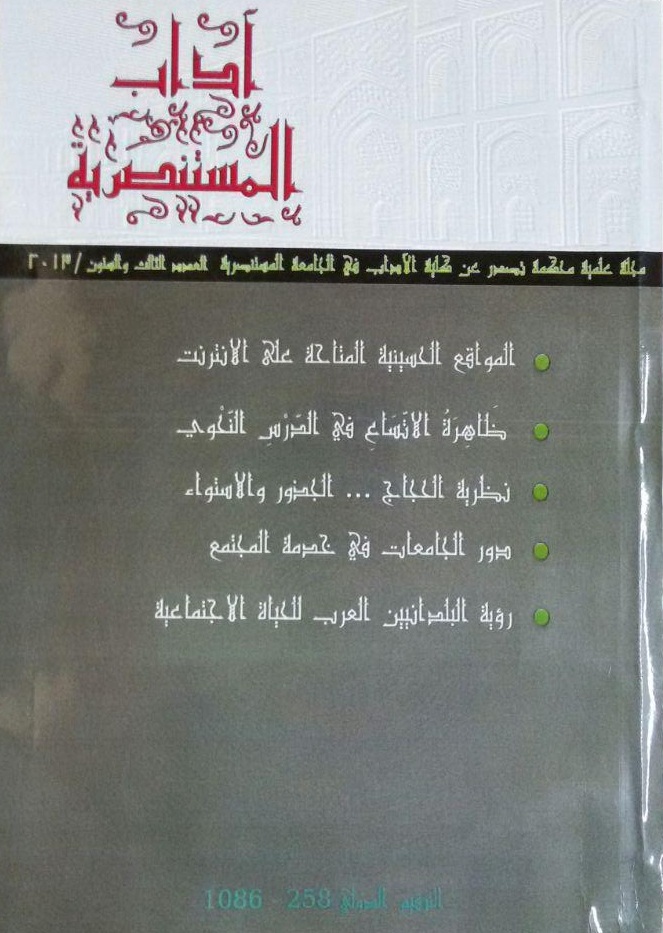 آداب
المستنصرية
مجلة علمية محكمة تصدر عن كلية الآداب في الجامعة المستنصرية العدد الثالث والستون / ٢٠١٣
المواقع الحسينية المتاحة على الانترنت
ظَاهِرَةُ الاتّسَاعِ في الدّرْسِ النّحْوي
نظرية الحجاج ... الجذور والاستواء
دور الجامعات في خدمة المجتمع
رؤية البلدانيين العرب للحياة الاجتماعية
الترقيم الدولي 258 - 1086